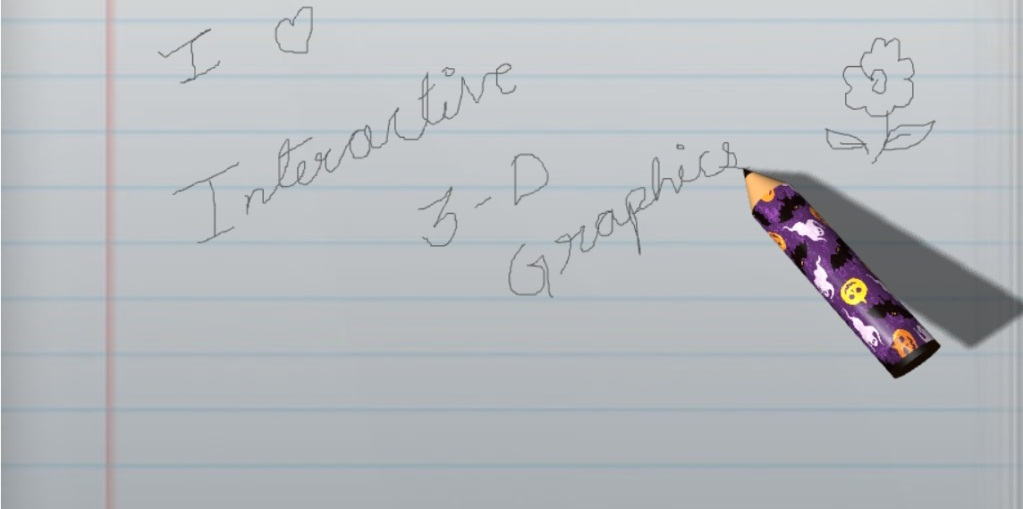 I ♡
Interactive
3-D
Graphics